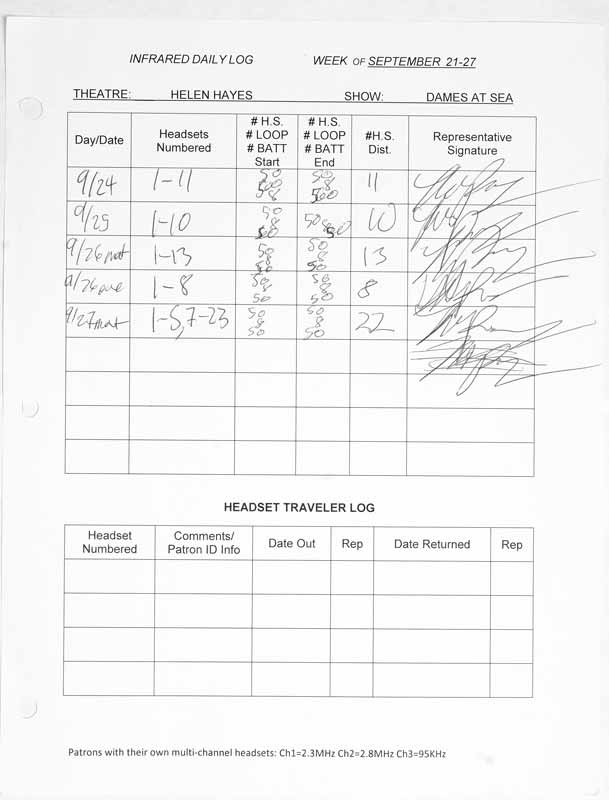 INFRARED DAILY LOG WEEK OF SEPTEMBER 21-27
THEATRE: HELEN HAYES SHOW: DAMES AT SEA
Day/Date
Headsets
Numbered
# H.S.
# LOOP
# BATT
Start
# H.S.
# LOOP
# BATT
End
#H.S.
Dist.
Representative
Signature
9/24 1-11 11
9/25 1-10 10
9/26 mat 1-13 13
9/26 eve 1-8 50 8 50 50 8 50 8
9/27 mat 1-5,7-23 50 8 50 50 8 50 22
HEADSET TRAVELER LOG
Headset
Numbered
Comments/
Patron ID Info
Date Out
Rep
Date Returned
Rep
Patrons with their own multi-channel headsets: Ch1=2.3MHz Ch2=2.8MHz Ch3=95KHz